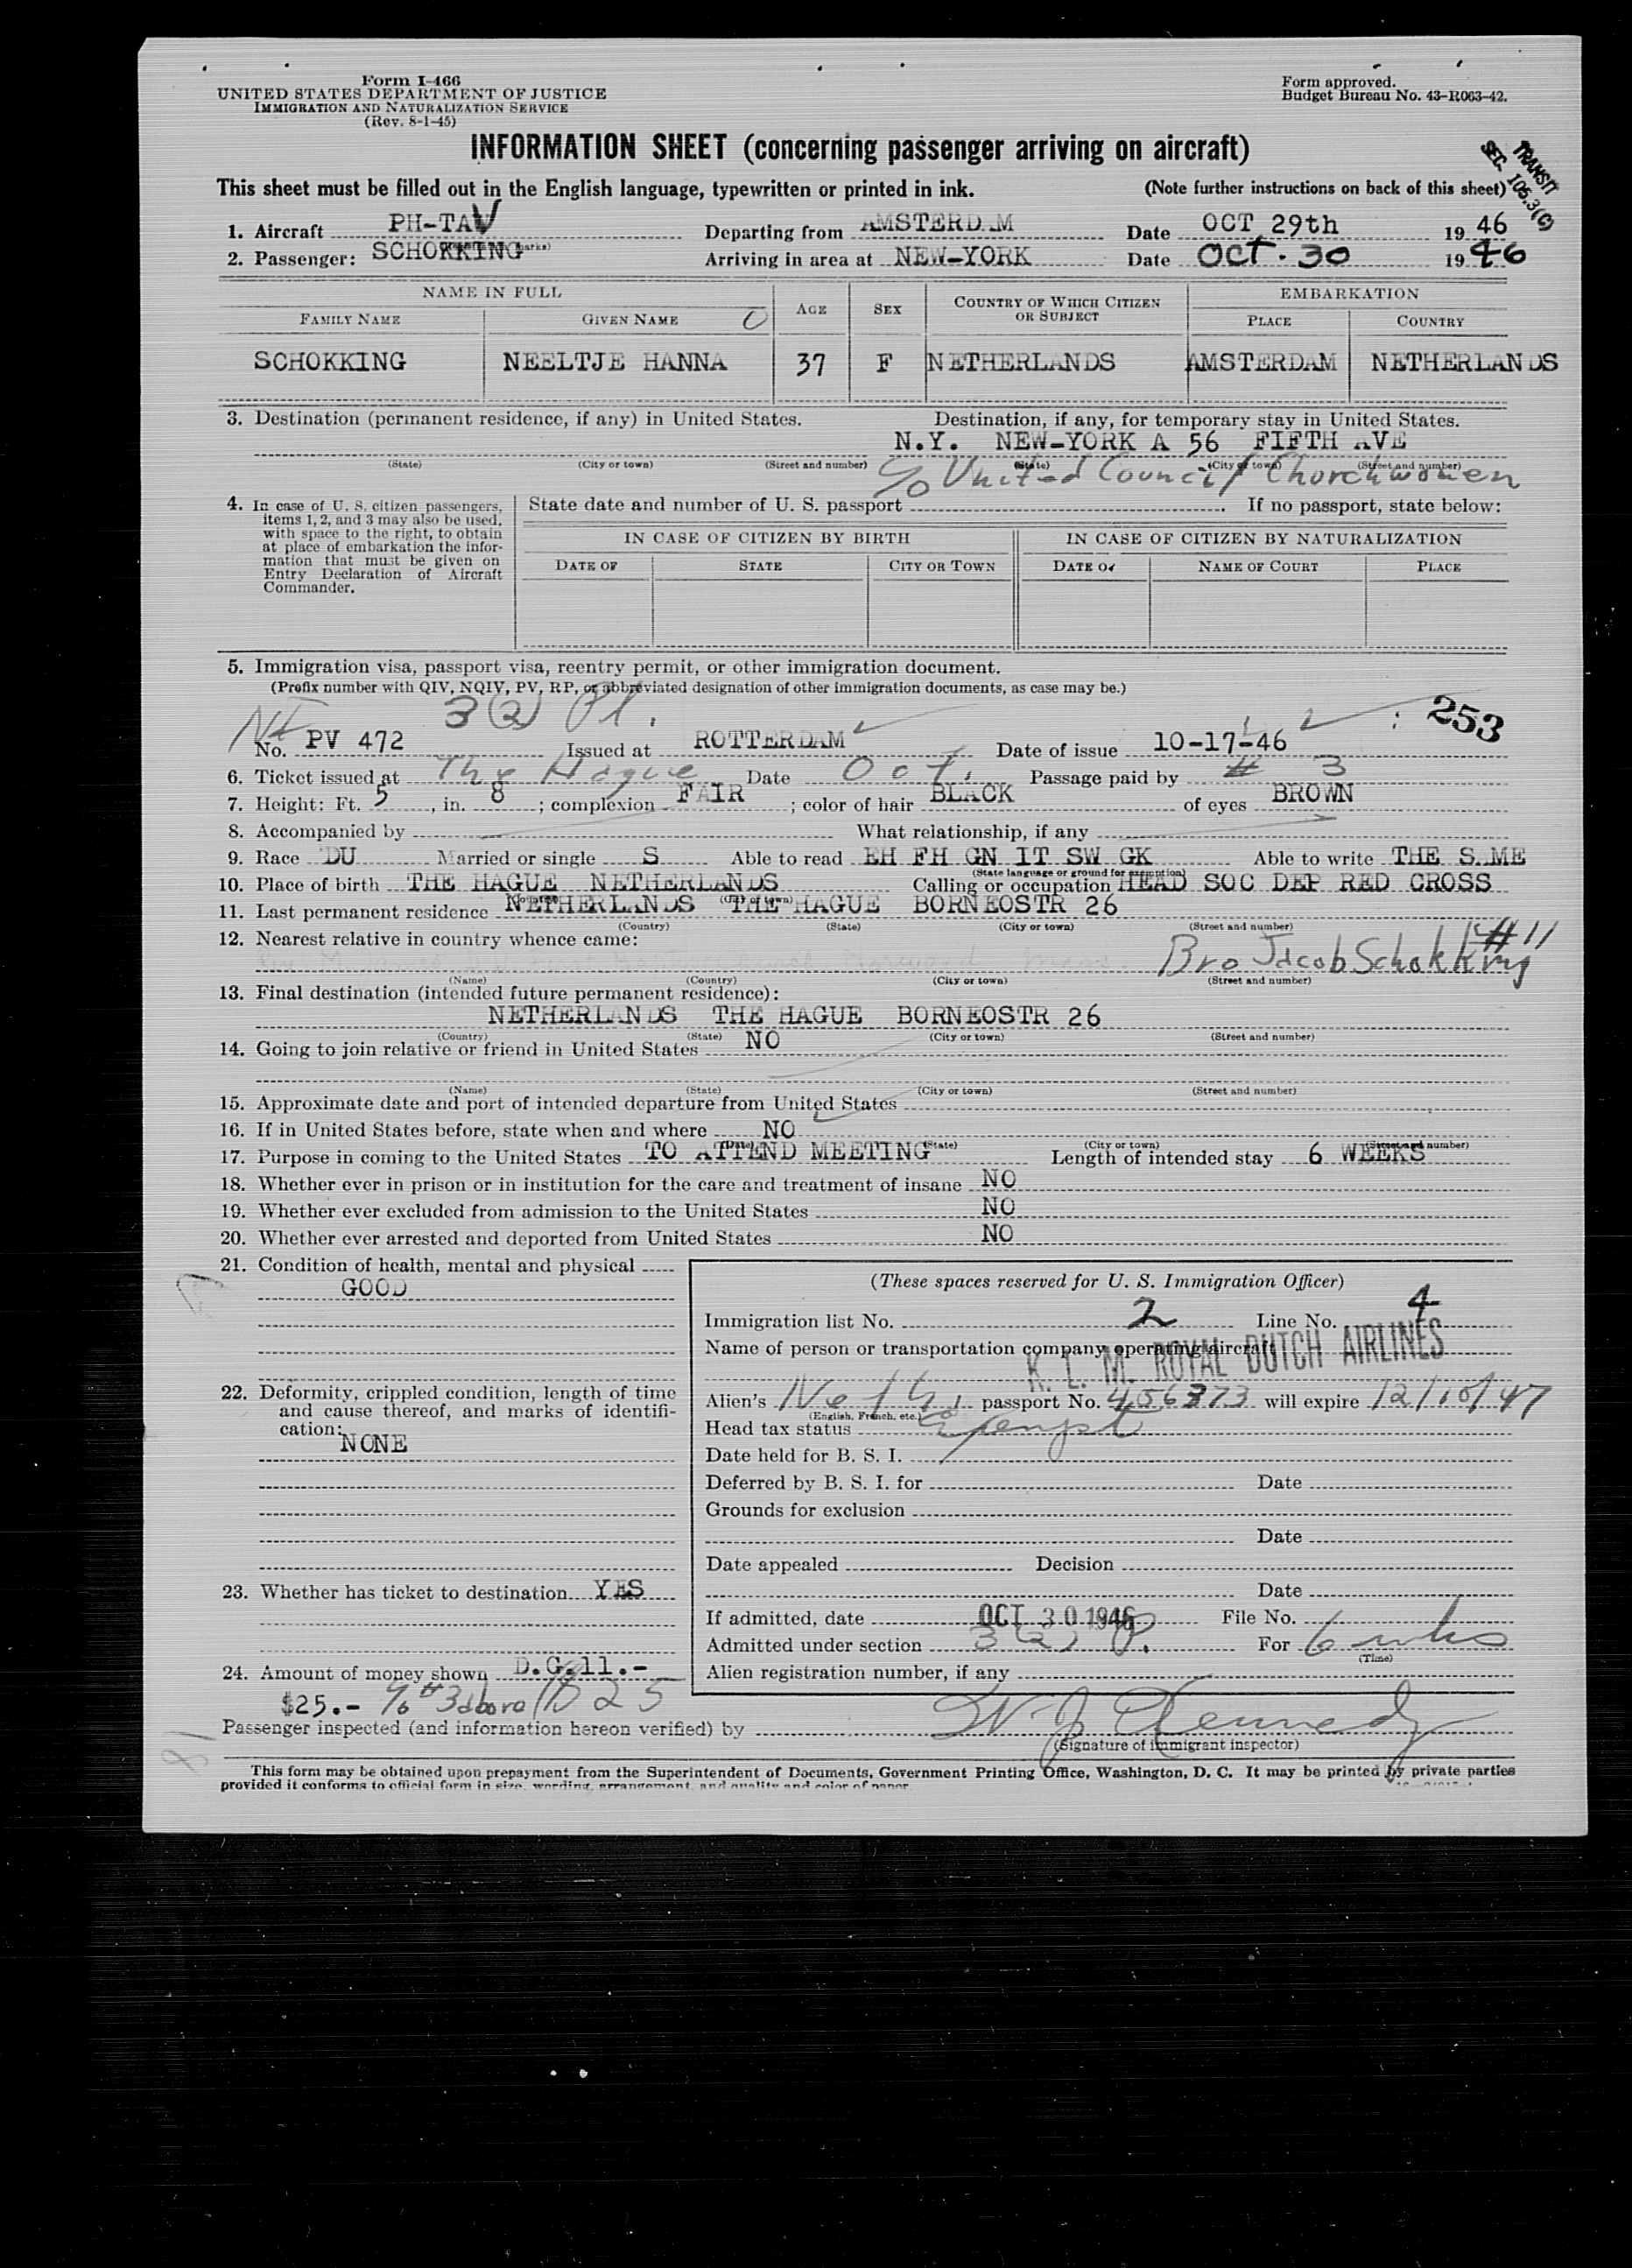 Form I-466
UNITED STATES DEPARTMENT OF JUSTICE
IMMIGRATION AND NATURALIZATION SERVICE
(Rev. 8-1-45)
Form approved.
Budget Bureau No. 43-R063-42.
INFORMATION SHEET (concerning passenger arriving on aircraft)
TRANSIT
SEC. 105.3(C)
This sheet must be filled out in the English language, typewritten or printed in ink. (Note further instructions on back of this sheet)
1. Aircraft PH-TAV Departing from AMSTERD.M Date OCT 29th 1946
2. Passenger: SCHOKKING Arriving in area at NEW-YORK Date OCT. 30 1946
NAME IN FULL AGE SEX COUNTRY OF WHICH CITIZEN OR SUBJECT EMBARKATION
FAMILY NAME GIVEN NAME PLACE COUNTRY
SCHOKKING NEELTJE HANNA 37 F NETHERLANDS AMSTERDAM NETHERLANDS
3. Destination (permanent residence, if any) in United States. Destination, if any, for temporary stay in United States.
N.Y. NEW-YORK A 56 FIFTH AVE
(State) (City or town) (Street and number) (State) (City or town) (Street and number)
c/o United Council Churchwomen
4. In case of U. S. citizen passengers, items 1, 2, and 3 may also be used, with space to the right, to obtain at place of embarkation the information that must be given on Entry Declaration of Aircraft Commander.
State date and number of U. S. passport If no passport, state below:
IN CASE OF CITIZEN BY BIRTH IN CASE OF CITIZEN BY NATURALIZATION
DATE OF STATE CITY OR TOWN DATE OF NAME OF COURT PLACE
5. Immigration visa, passport visa, reentry permit, or other immigration document.
(Prefix number with QIV, NQIV, PV, RP, or abbreviated designation of other immigration documents, as case may be.)
3(2) Pl. 253
No. PV 472 Issued at ROTTERDAM Date of issue 10-17-46
6. Ticket issued at The Hague Date Oct. Passage paid by # 3
7. Height: Ft. 5, in. 8; complexion FAIR; color of hair BLACK of eyes BROWN
8. Accompanied by What relationship, if any
9. Race DU Married or single S Able to read EH FH GN IT SW GK Able to write THE S.ME
(State language or ground for exemption)
10. Place of birth THE HAGUE NETHERLANDS Calling or occupation HEAD SOC DEP RED CROSS
11. Last permanent residence NETHERLANDS THE HAGUE BORNEOSTR 26
(Country) (State) (City or town) (Street and number)
12. Nearest relative in country whence came: # 11
Bro Jacob Schokking
(Name) (Country) (City or town) (Street and number)
13. Final destination (intended future permanent residence):
NETHERLANDS THE HAGUE BORNEOSTR 26
(Country) (State) (City or town) (Street and number)
14. Going to join relative or friend in United States NO
(Name) (State) (City or town) (Street and number)
15. Approximate date and port of intended departure from United States
16. If in United States before, state when and where NO
(Date) (State) (City or town) (Street and number)
17. Purpose in coming to the United States TO ATTEND MEETING Length of intended stay 6 WEEKS
18. Whether ever in prison or in institution for the care and treatment of insane NO
19. Whether ever excluded from admission to the United States NO
20. Whether ever arrested and deported from United States NO
21. Condition of health, mental and physical
GOOD
22. Deformity, crippled condition, length of time and cause thereof, and marks of identification:
NONE
23. Whether has ticket to destination YES
24. Amount of money shown D.G.11.-
$25.- c/o #3 above
(These spaces reserved for U. S. Immigration Officer)
Immigration list No. 2 Line No. 4
Name of person or transportation company operating aircraft
K. L. M. ROYAL DUTCH AIRLINES
Alien's Neth. passport No. 456373 will expire 12/10/47
(English, French, etc.)
Head tax status Exempt
Date held for B. S. I.
Deferred by B. S. I. for Date
Grounds for exclusion
Date
Date appealed Decision
Date
If admitted, date OCT 30 1946 File No.
Admitted under section 3(2) For 6 wks
(Time)
Alien registration number, if any
Passenger inspected (and information hereon verified) by W J Kennedy
(Signature of immigrant inspector)
This form may be obtained upon prepayment from the Superintendent of Documents, Government Printing Office, Washington, D. C. It may be printed by private parties
provided it conforms to official form in size, wording, arrangement, and quality and color of paper